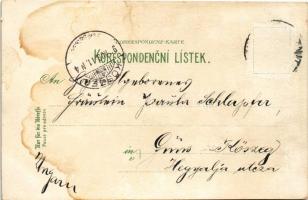 CORRESPONDENZ-KARTE
KORESPONDENČNÍ LÍSTEK.
KŐSZEG
An Hochwolgeborenes
Fräulein Paula Schlapfer,
in Güns Kőszeg
Hegyalja utcza
Ungarn
Nur für die Adresse
Pouze pro adresu